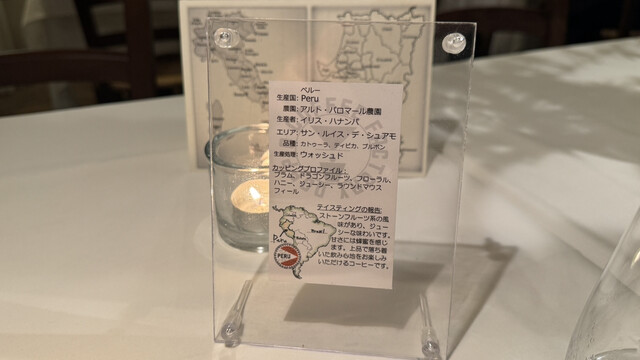 ペルー
生産国: Peru
農園: アルト・パロマール農園
生産者: イリス・ハナンパ
エリア: サン・ルイス・デ・シュアモ
品種: カトゥーラ、ティピカ、ブルボン
生産処理: ウォッシュド
カッピングプロファイル:
プラム、ドラゴンフルーツ、フローラル、
ハニー、ジューシー、ラウンドマウス
フィール
テイスティングの報告:
ストーンフルーツ系の風
味があり、ジュー
シーな味わいです。
甘さには蜂蜜を感じ
ます。上品で落ち着
いた飲み心地をお楽しみ
いただけるコーヒーです。
Brazil
Peru
PERU